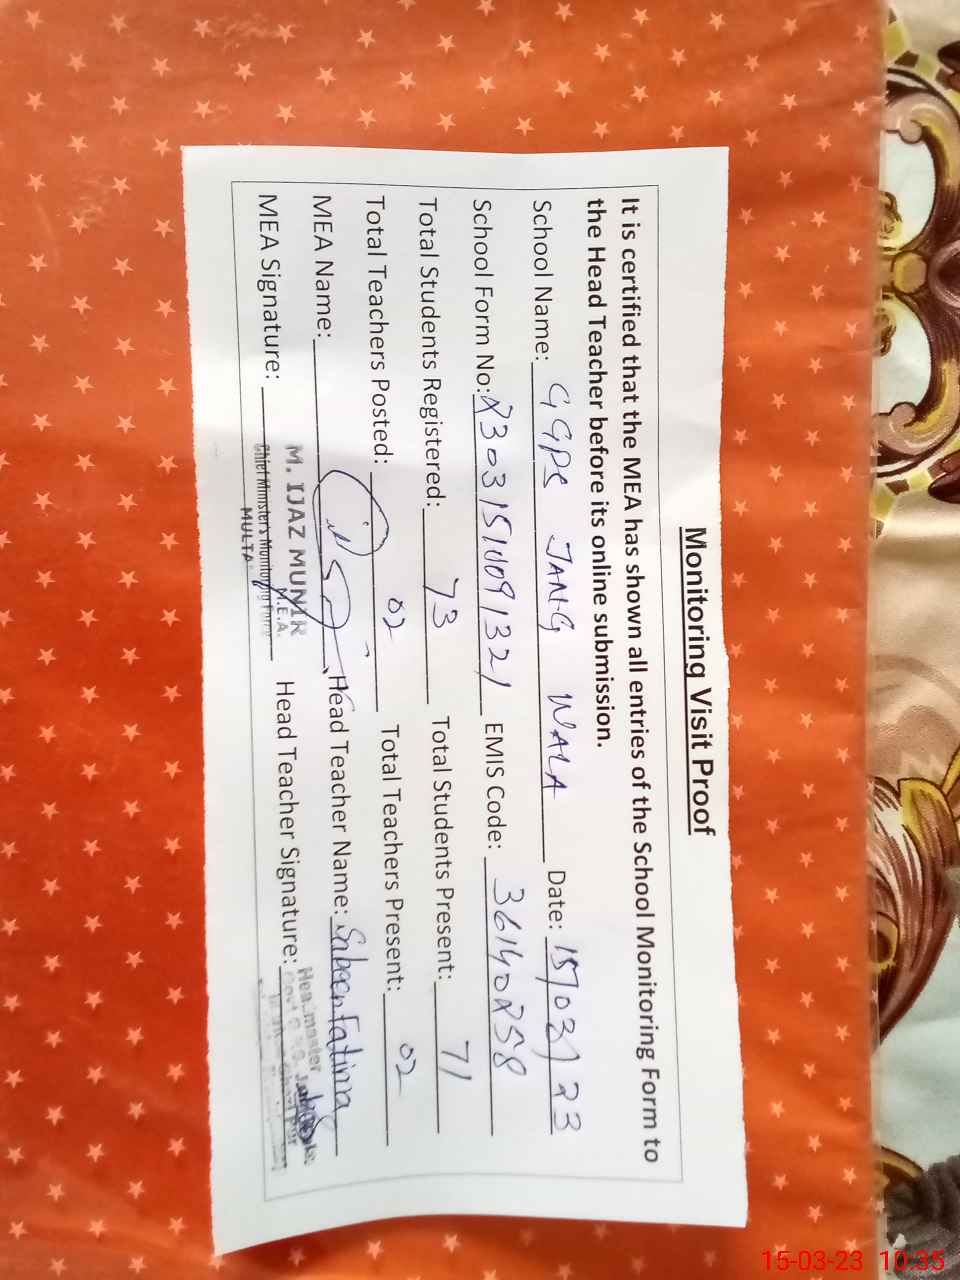 Monitoring Visit Proof
It is certified that the MEA has shown all entries of the School Monitoring Form to
the Head Teacher before its online submission.
School Name: GGPS JANG WALA Date: 15/03/23
School Form No: 230315110911321 EMIS Code: 36140258
Total Students Registered: 73 Total Students Present: 71
Total Teachers Posted: 02 Total Teachers Present: 02
MEA Name: Head Teacher Name: Sabeen Fatima
MEA Signature: Head Teacher Signature:
M. IJAZ MUNIR
M.E.A.
Chief Minister's Monitoring Force
MULTA
Headmaster
15-03-23 10:35